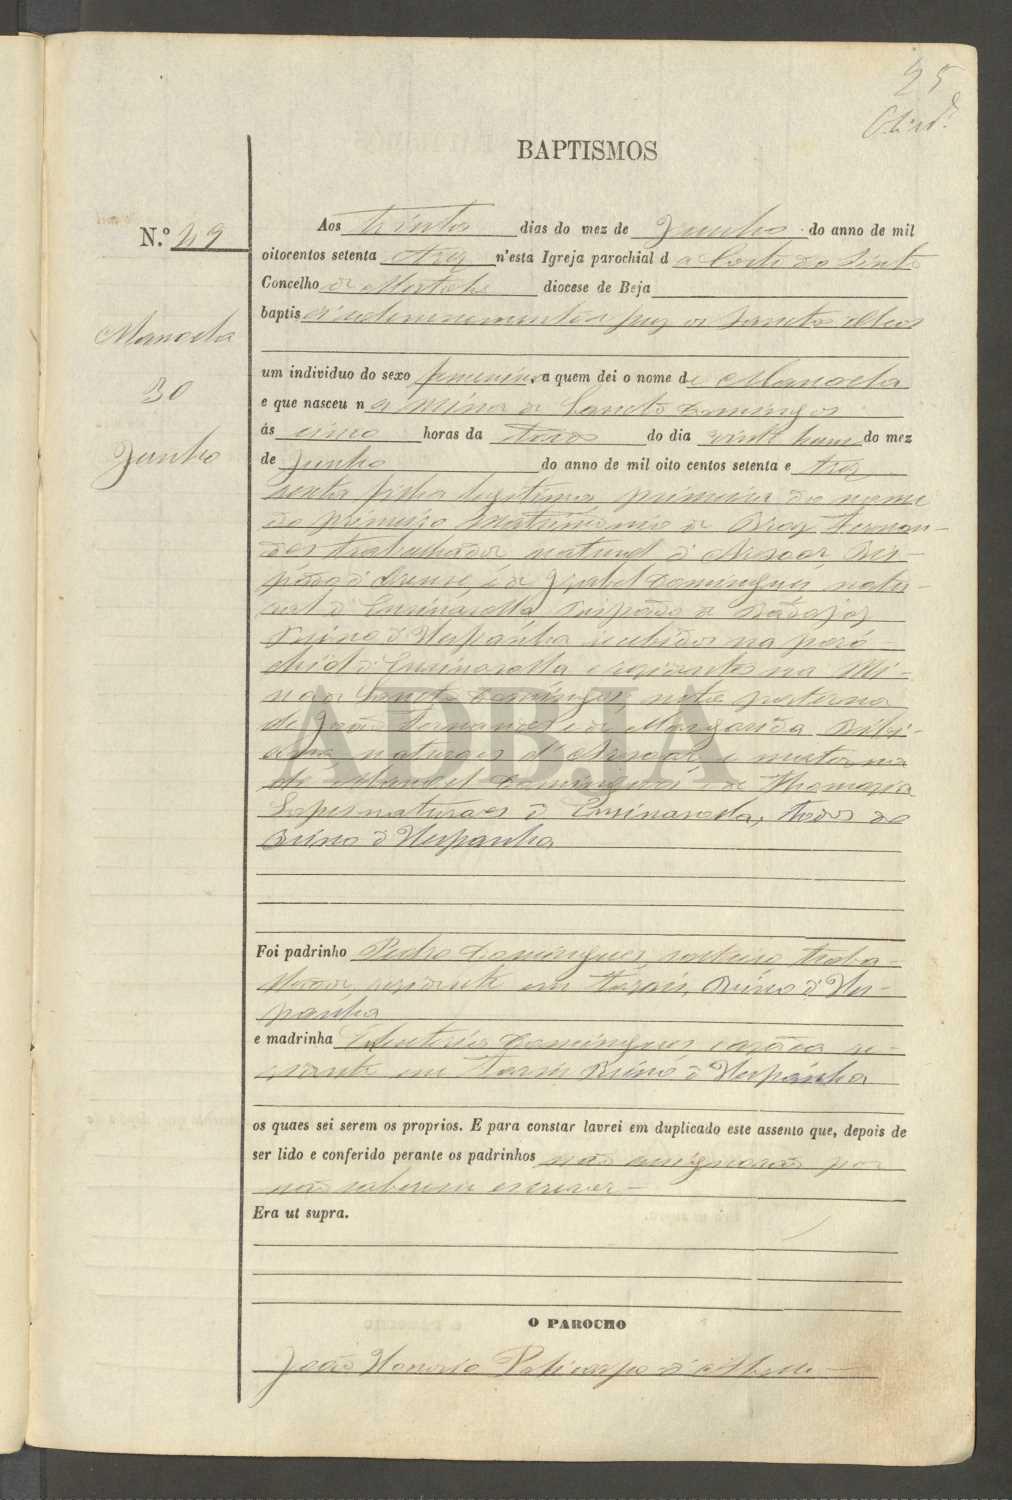 25
BAPTISMOS
N.º 49
Manoela
30
Junho
Aos trinta dias do mez de Junho do anno de mil
oitocentos setenta e trez n'esta Igreja parochial d a Corte do Pinto
Concelho de Mertola diocese de Beja
baptis ei solemnemente e puz os Sanctos Oleos
um individuo do sexo femenino, a quem dei o nome de Manoela
e que nasceu n a Mina de Sancto Domingos
ás cinco horas da do dia vinte hum do mez
de Junho do anno de mil oito centos setenta e trez
filha legitima primeira do nome
do primeiro Matrimonio de Braz Fernan-
des trabalhador natural d' Bis-
pado d' e de Izabel Domingues, natu-
ral d' Ensinasolla Bispado de Badajoz
Reino d'Hespanha recebidos na paro-
chial d' Ensinasolla e rezidentes na Mi-
na de Sancto Domingos, neta paterna
de João Fernandes e de Margarida
naturaes d' e materna
de Manoel Domingues e de Thomazia
Lopes naturaes d' Ensinasola, todos do
Reino d'Hespanha
Foi padrinho Pedro Domingues, solteiro traba-
lhador, rezidente em Reino d'Hes-
panha
e madrinha Domingues cazada re-
zidente em Reino d'Hespanha
os quaes sei serem os proprios. E para constar lavrei em duplicado este assento que, depois de
ser lido e conferido perante os padrinhos não assignarão por
não saberem escrever
Era ut supra.
O PAROCHO
João Honorio Policarpo d'
ADBJA